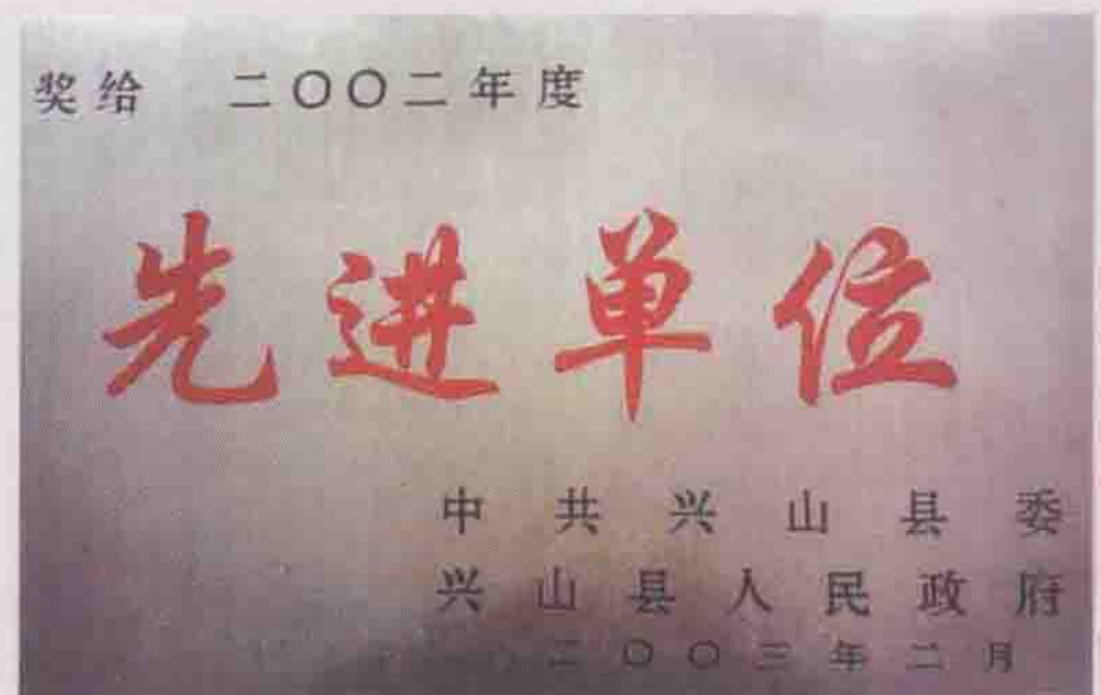 奖给 二〇〇二年度
先进单位
中共兴山县委
兴山县人民政府
二〇〇三年二月